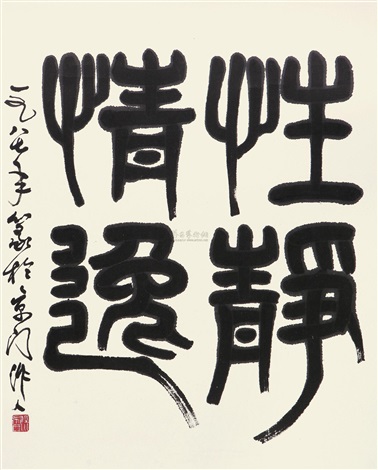 性靜
情逸
一九八七年篆於京門作人